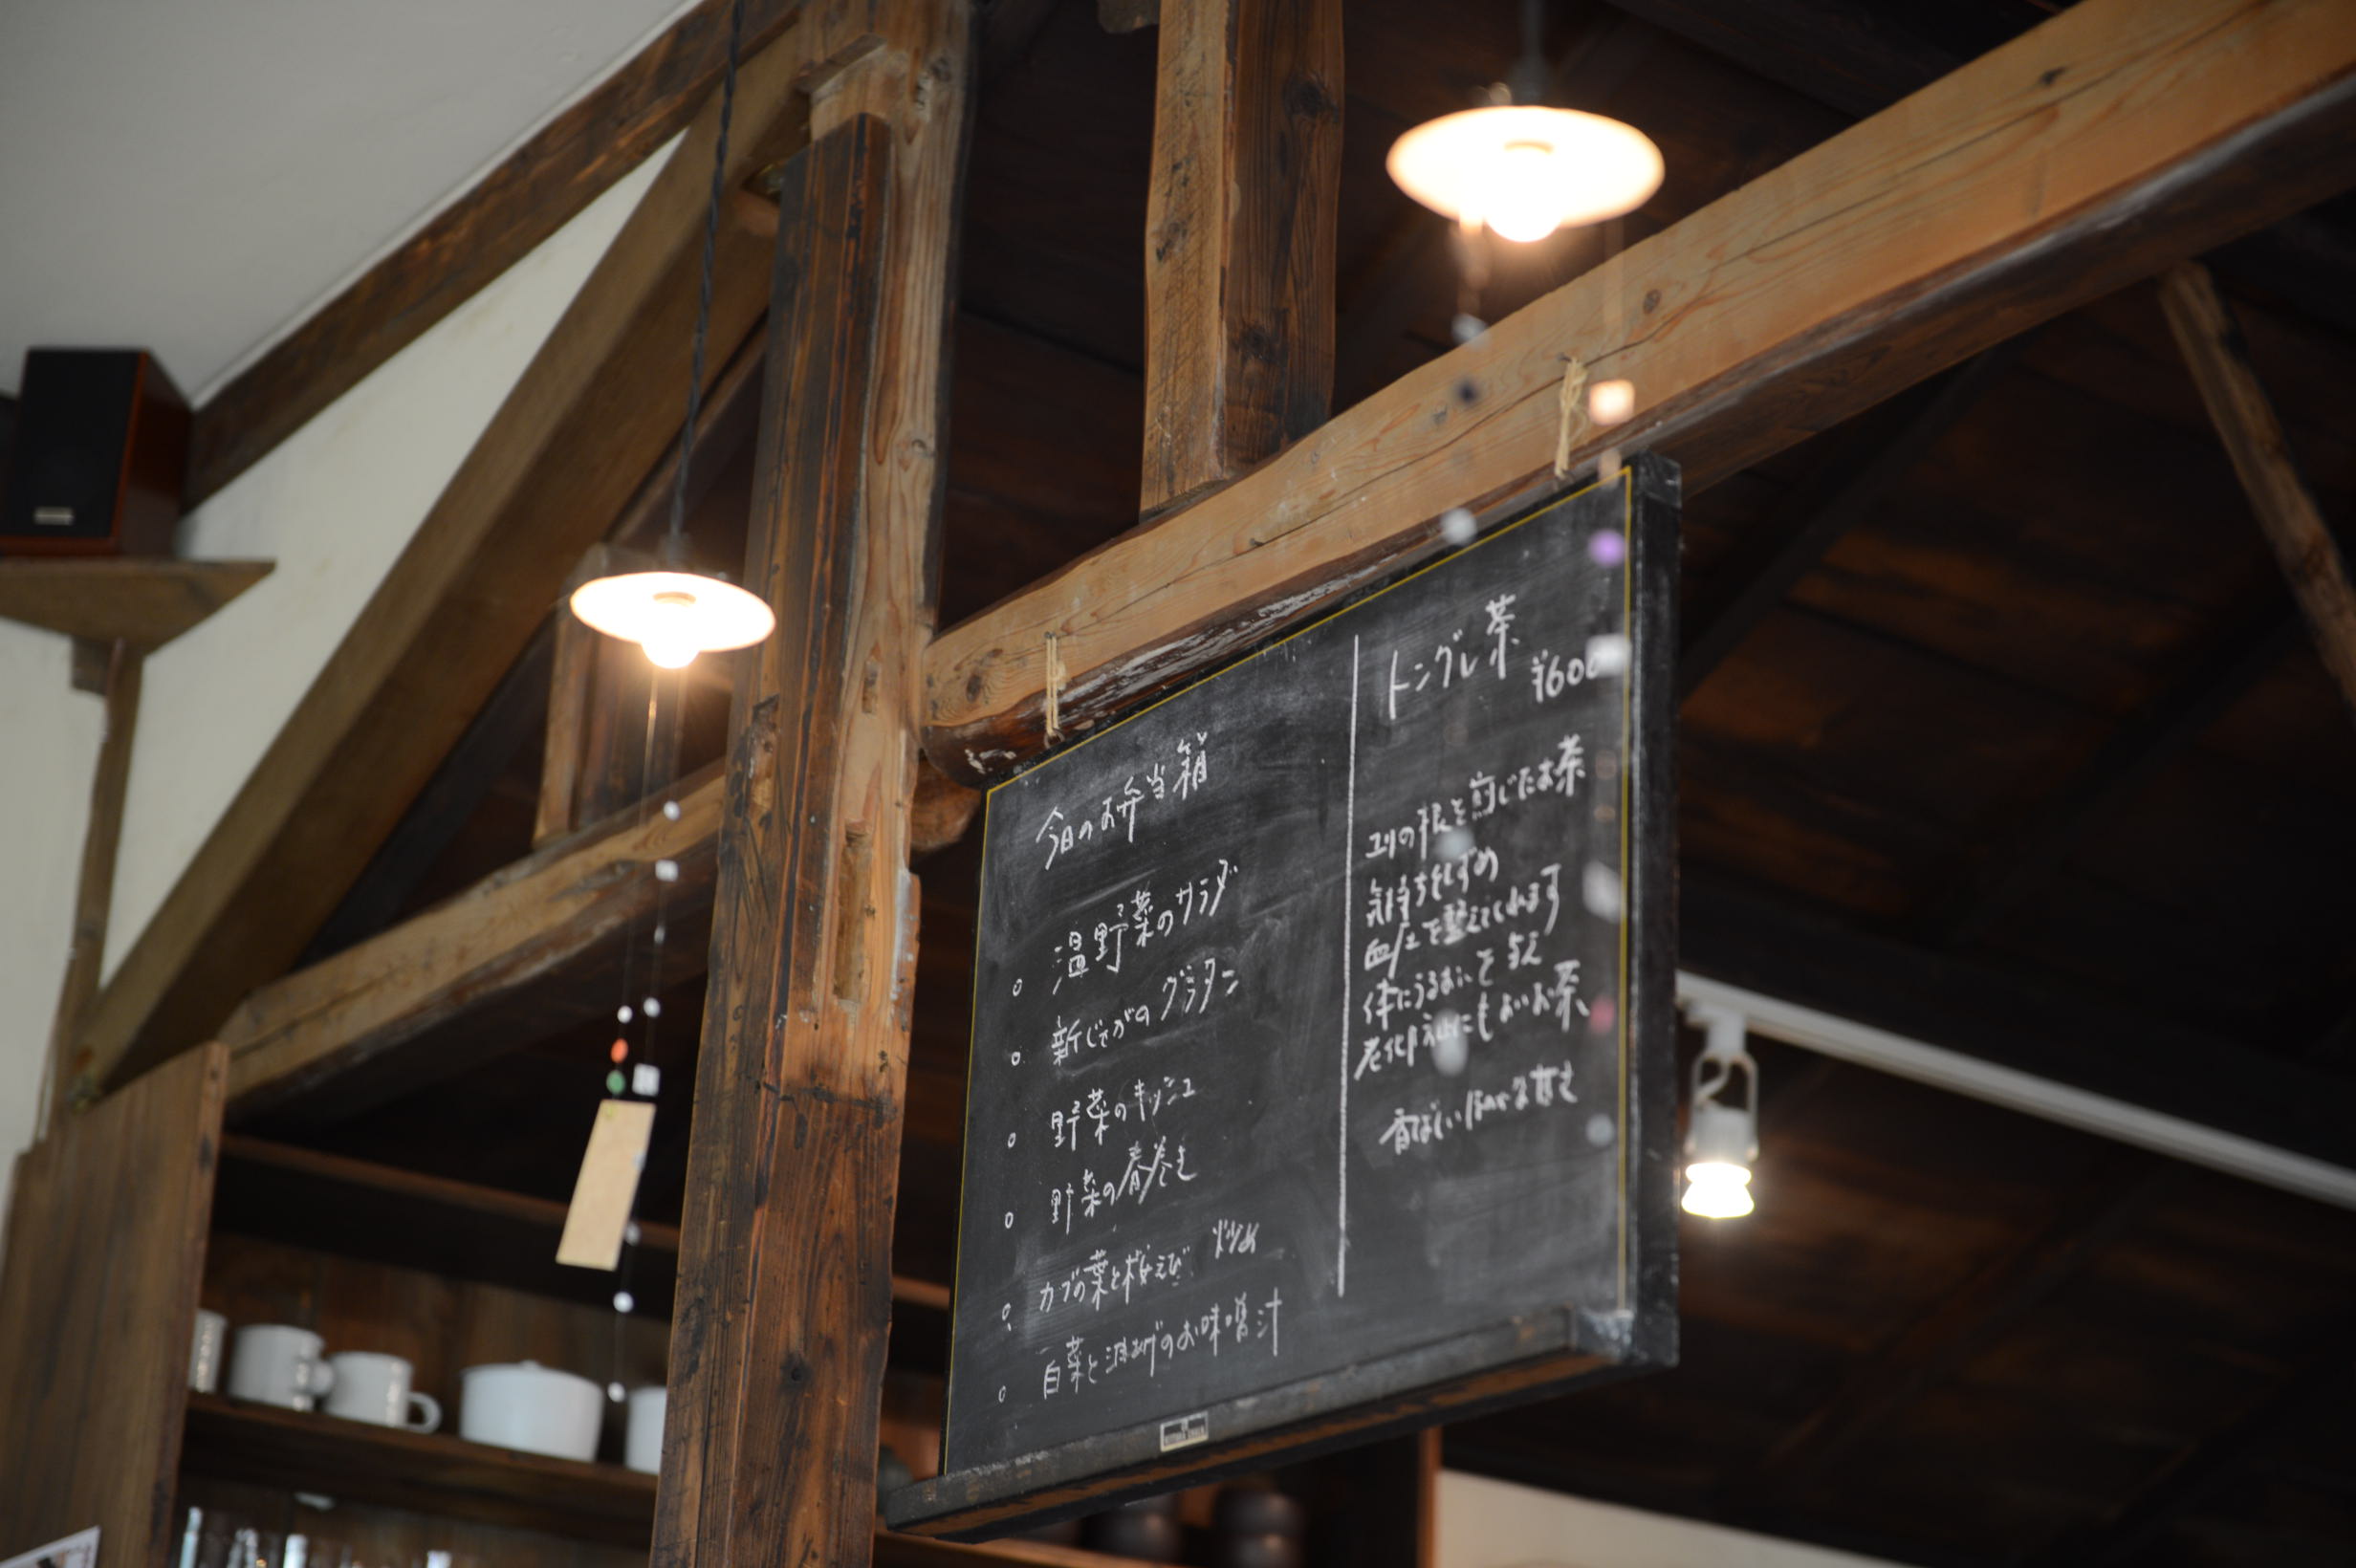 今日のお弁当箱
○ 温野菜のサラダ
○ 新じゃがのグラタン
○ 野菜のキッシュ
○ 野菜の春巻き
○ カブの葉と桜えび 炒め
○ 白菜と油揚げのお味噌汁
トングレ茶
¥600
ユリの根を煎じたお茶
気持ちをしずめ
血圧を整えてくれます
体にうるおいを与え
老化防止にもよいお茶
香ばしいほのかな甘さ